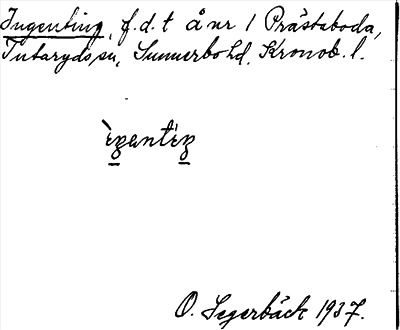 Ingenting, f.d. t å nr 1 Prästaboda,
Tutaryds sn, Sunnerbo hd, Kronob. l.
O. Segerbäck 1937.